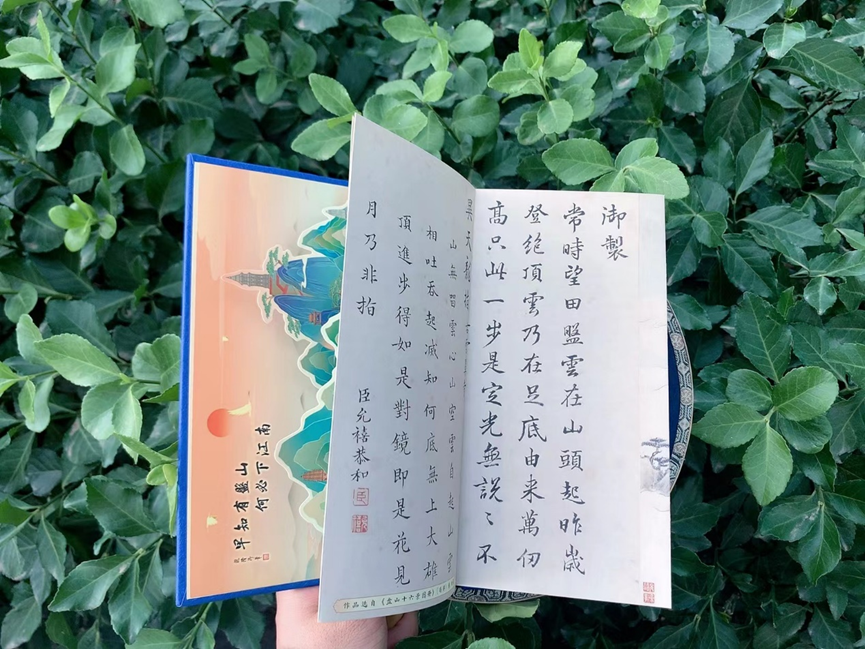 御製
常時望田盤雲在山頭起昨歲
登絕頂雲乃在足底由来萬仞
高只此一步是定光無説〻不
山無留雲心山空雲自起山空
相吐吞起滅知何底無上大雄
頂進步得如是對鏡即是花見
月乃非指
臣允禧恭和
作品选自《盘山十六景图册》
早知有盤山
何必下江南